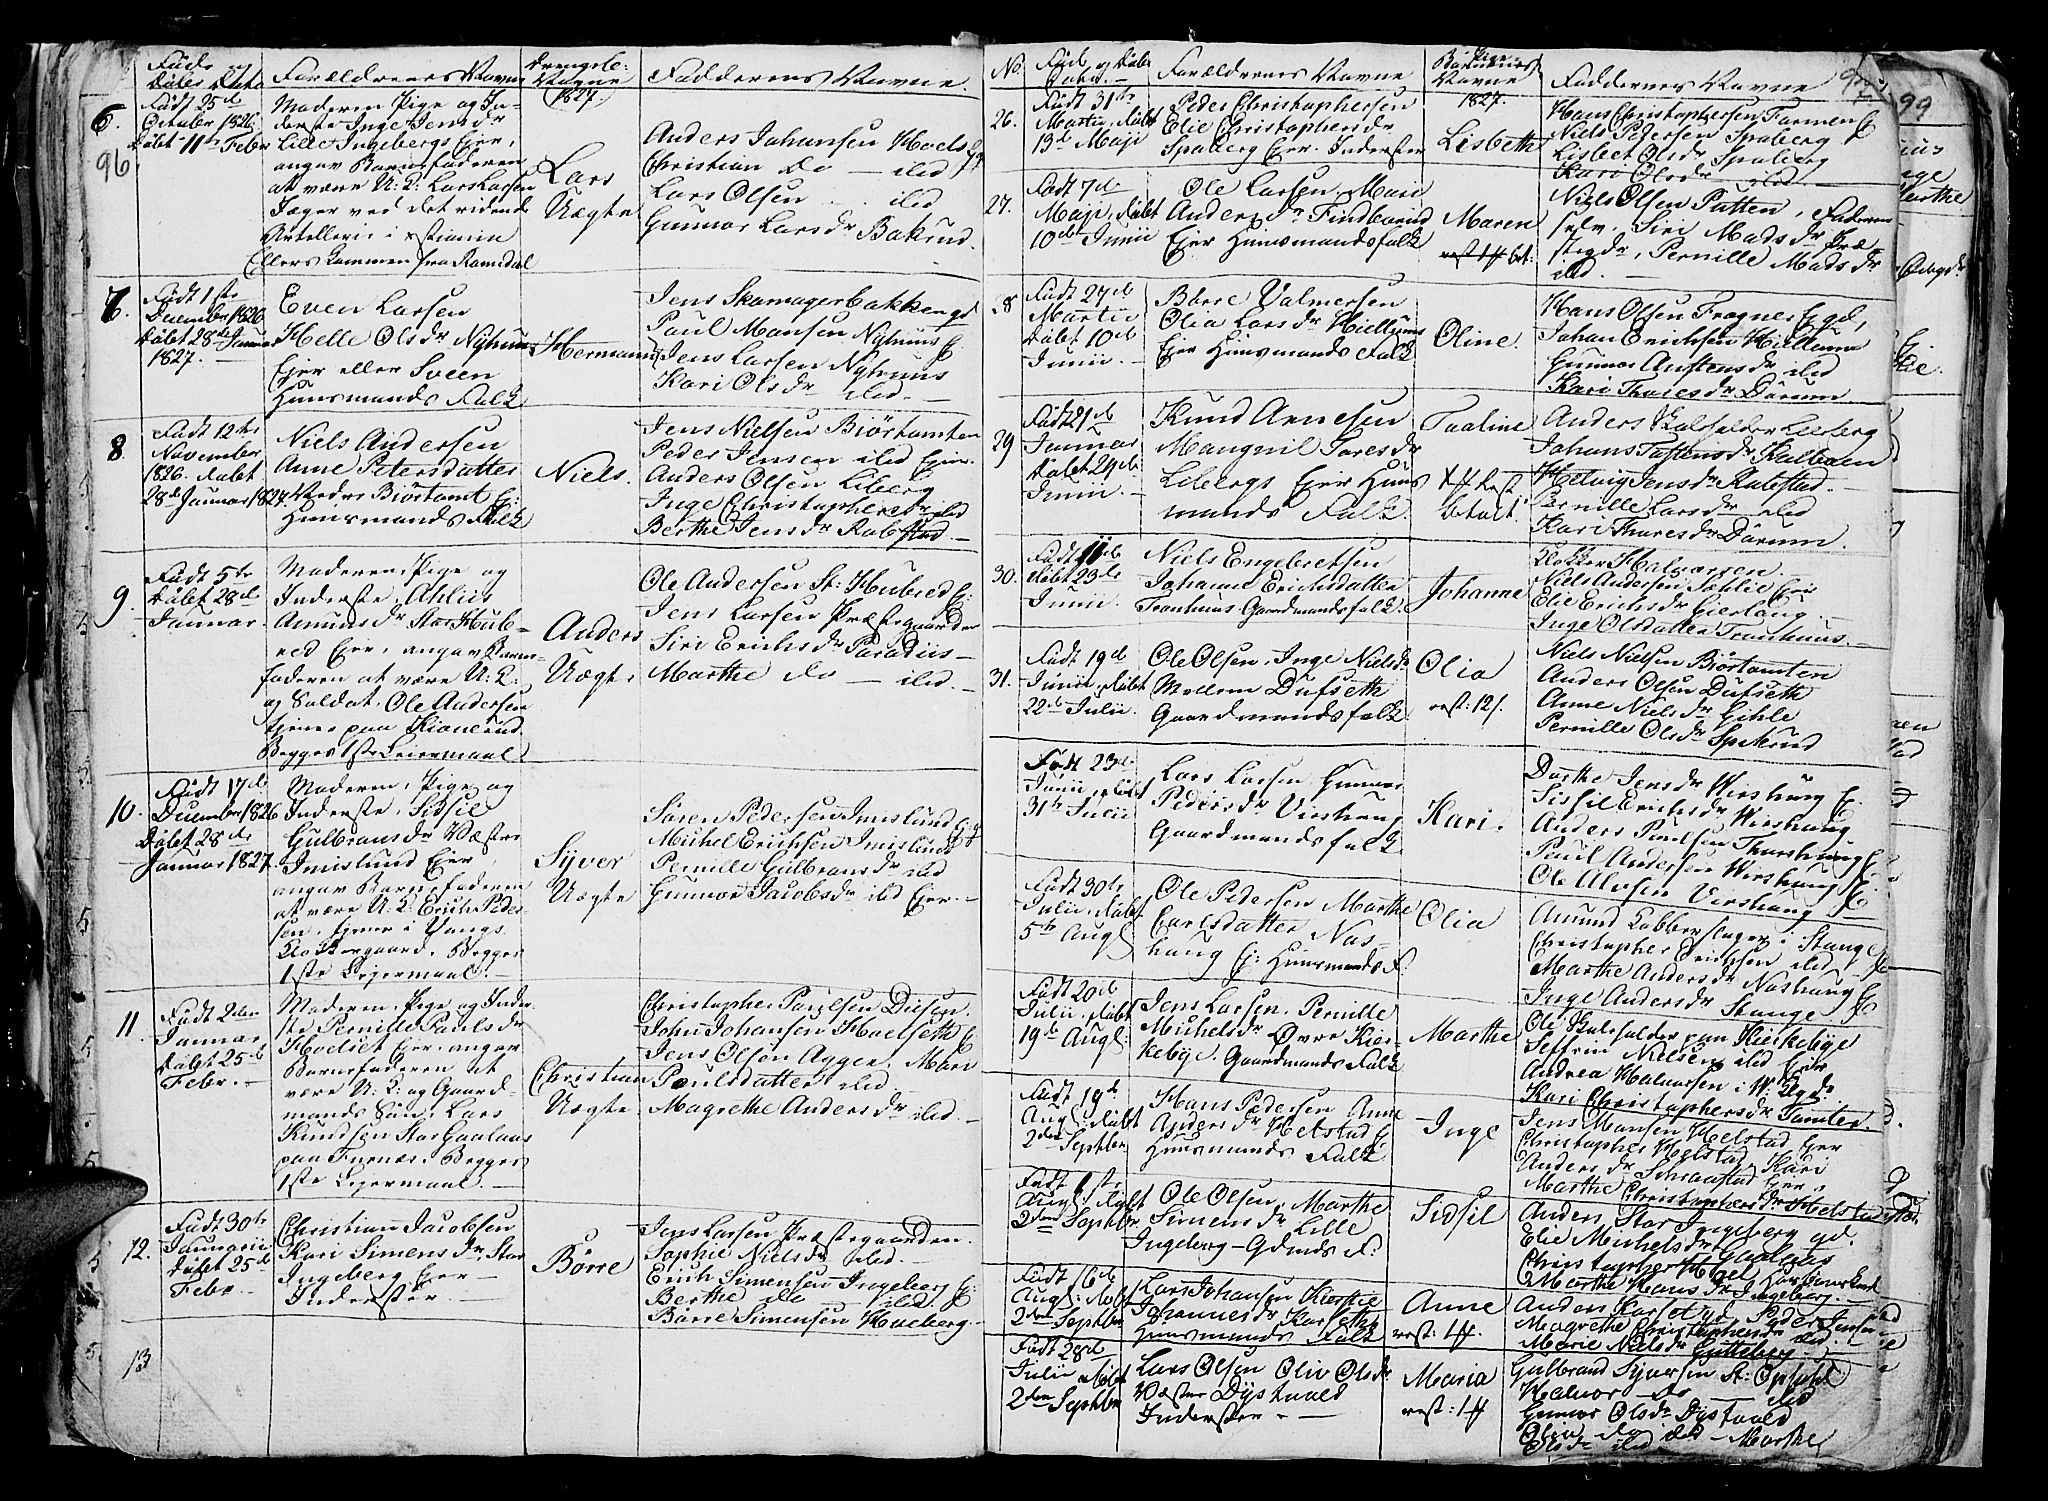 Föds og
Döbes Dato
Forældrenes Navne
Drengeb:
Navne
1827.
Faddernes Navne.
6.
96
Født 25de
October 1826
Döbt 11te Febr
Moderen Pige og In-
derste Inge Jens dr
Lille Ingebergs Eier,
angav Barnefaderen
at være U: K: Lars Larsen
Jæger ved det ridende
Artellerie i
Ellers kommen fra Romsdal
Lars
Uægte
Anders Johansen Hoels
Christian Do — ibid
Lars Olsen — ibid
Gunnor Lars dr Bakrud.
7.
Født 1ste
December 1826
Döbt 28de Januar
1827.
Even Larsen
Helle Ols dr Nyhuus
Eier eller Sveen
Huusmands Folk
Hermann
Jens Skomagerbakkengd
Paul Monsen Nyhuus E:
Jens Larsen Nyhuus
Kari Ols dr ibid.
8.
Født 12te
November
1826. Döbt
28de Januar 1827.
Niels Andersen
Anne Petersdatter
Nedre Biörtomt Ej:
Huusmands Folk
Niels.
Jens Nielsen Biörtomten
Peder Jensen ibid Eier.
Anders Olsen Liberg
Inge Christophersdr ibid
Berthe Jens dr Rabstad.
9.
Født 5te
Döbt 28de
Januar.
Moderen Pige og
Inderste, Ahlis
Amunds dr Stor Hub-
red Eier, angav Barne-
faderen at være U: K:
og Soldat, Ole Andersen
tjener paa Kionerud
Begges 1ste Leiermaal.
Anders
Uægte
Ole Andersen St: Hubred E:
Jens Larsen Præstegaarden
Siri Erichs dr Paradiis —
Marthe do — ibid. —
10.
Født 17de
December 1826
Döbt 28de
Januar 1827.
Moderen, Pige og
Inderste, Sidsil
Gulbrans dr Væstre
Imislund Eier,
angav Barnefaderen
at være U: K: Erich Peder
sen, tjener i Vangs
Klokkergaard, Begges
1ste Leiermaal. —
Syver
Uægte
Sören Pedersen Imislund
Michel Erichsen Imislund
Pernille Gulbrans dr ibid
Gunnor Jacobs dr ibid Eier. —
11
Født 2den
Januar
Döbt 25de
Febr. —
Moderen, Pige og Inder
ste Pernille Pauls dr
Hoelset Eier, angav
Barnefaderen at
være U: K: og Gaard-
mands Sön, Lars
Knudsen Stor Gaalaas
paa Furnæs. Begges
1ste Leiermaal. —
Christian
Uægte
Christopher Paulsen Diisen.
John Johansen Hoelseth E
Jens Olsen Agger. Mari
Poulsdatter ibid.
Magrethe Anders dr ibid. —
12.
Født 30te
Januarii
Döbt 25de
Febr.
Christian Jacobsen
Kari Simens dr Stor
Ingeberg Eier —
Inderster. —
Börre
Jens Larsen Præstegaarden.
Sophie Niels dr ibid. —
Erich Simensen Ingeberg E:
Berthe do ibid.
Börre Simensen Hoeberg.
13
No.
Föds og Döbes
Datoer. —
Forældrenes Navne
Pige
Börnenes
Navne
1827.
Faddernes Navne
99
26.
Født 31te
Martii, Döbt
13de Maji
Peder Christophersen
Elie Christophers dr
Spaberg Eier. Inderster
Lisbeth
Hans Christophersen Formen E
Niels Pedersen Spaberg
Lisbet Ols dr Spaberg
Kari Ols dr ibid. —
27.
Født 7de
Maji, Döbt
10de Junii
Ole Larsen, Mari
Anders dr Findbærud
Eier Huusmandsfolk
Maren
Niels Olsen Putten, Faderen
selv, Siri Mads dr Præ
stegd:, Pernille Mads dr
ibid. —
28
Født 27de
Martii
Döbt 10de
Junii —
Börre Valmersen
Olia Lars dr Hiellums
Eier Huusmands Folk
Oline.
Hans Olsen Frogner Egd,
Johan Erichsen Hiellum
Gunnor Austens dr ibid
Kari Thores dr Dörum.
29
Født 21de
Januar
Döbt 24de
Junii —
Knud Arnesen
Mangnil Tores dr
Libergs Eier Huus
mands Folk.
Paaline
rest
betalt.
Anders Kulsvider Liberg
Johans Tostens dr Kalboen
Helvig Jens dr Rabstad. —
Pernille Lars dr ibid
Kari Thores dr Dörum.
30.
Født 11de
Döbt 23de
Junii —
Niels Engebretsen
Johanne Erichsdatter
Tronhuus Gaardmandsfolk
Johanne
Klokker Halvorsen. —
Niels Andersen Sahlie Eier
Elie Erichs dr Gierlaug
Inge Olsdatter Tronhuus. —
31.
Født 19de
Junii, Döbt
22de Julii.
Ole Olsen, Inge Niels dr
Mellem Dufseth
Gaardmandsfolk.
Olia
rest: 12/.
Niels Nielsen Biörtomten
Anders Olsen Dufseth
Anne Niels dr Gihle
Pernille Ols dr Spikrud
Født 23de
Junii, Döbt
31te Julii
Lars Larsen Gunnor
Peders dr Virshaug
Gaardmandsfolk
Kari.
Dorthe Jens dr Wirshaug E.
Sissil Erichs dr Wirshaug
Anders Poulsen Thorshaug E
Poul Andersen Wirshaug E
Ole Alvsen Virshaug
Født 30te
Julii, Döbt
5te Augl
Ole Pedersen Marthe
Carlsdatter Nas-
haug Ej: Huusmands F.
Olia
Amund Kobberslager i Stange
Christopher Erichsen ibid
Marthe Anders dr Noshaug E
Inge Anders dr Stange
Født 20de
Julii, Döbt
19de Augl:
Jens Larsen, Pernille
Michels dr Övre Kier-
kebye. Gaardmands Folk
Marthe
Ole Kulsvider paa Kierkebye
Seffrin Nielsen ibid Eier
Andrea Halvorsen i W:
Kari Christophers dr Tomter.
Født 19de
Augl: Döbt
2den Septbr
Hans Pedersen Anne
Anders dr Helstad E:
Huusmands Folk
Inge
Jens Monsen Helstad Eier
Christopher Helstad Kari
Anders dr Schraastad Eier,
Marthe Christophers dr Helstad
Født 1ste
Augl. Döbt
2den Septbr
Ole Olsen, Marthe
Simens dr Lille
Ingeberg — Gdmds F:
Sidsil
Anders Stor Ingeberg gd.
Elie Michels dr Gaalaas
Christopher Hoel,
Marthe Hans dr Ingeberg. —
Født 16de
Augl: Döbt
2den Septbr
Lars Johansen Kirstie
Johannes dr Karseth
Huusmands Folk
Anne
Anders Karset gd Peder Jensen
Magrethe Christophers dr ibid.
Marie Niels dr Gutteberg —
Født 28de
Julii Döbt
2den Septbr
Lars Olsen Oliv Ols dr
Væster Dystvold
Inderster. —
Maria
Gulbrand Syversen St: Opsahl
Halvor — do — ibid
Gunnor Ols dr Dystvold
Olia do ibid — Marthe
Ols dr ibid